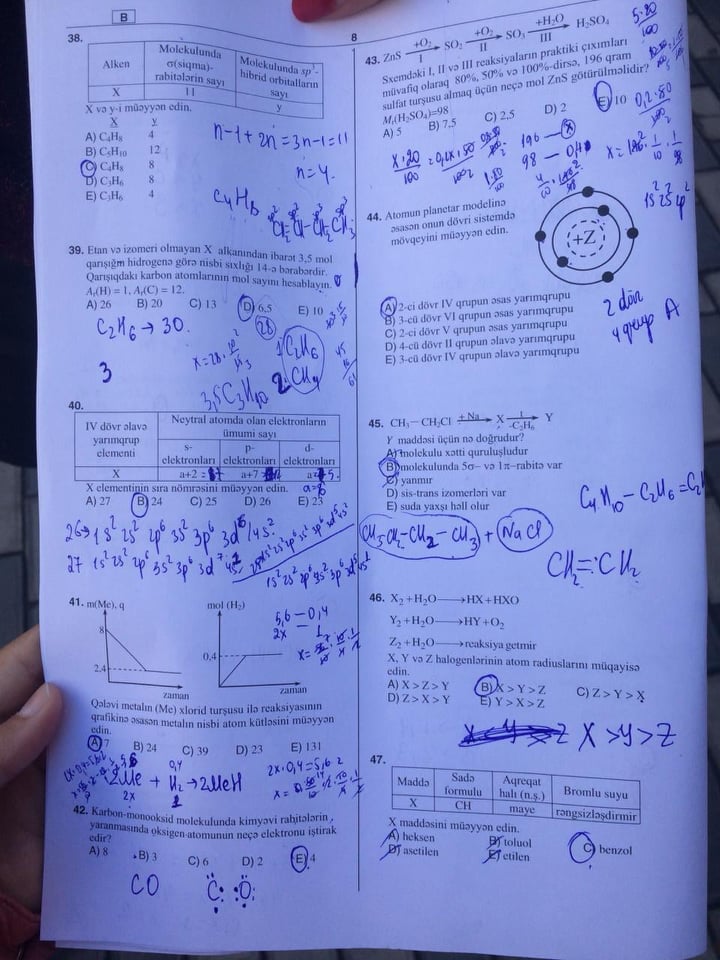 B
8
38.
Alken
Molekulunda σ(siqma)-rabitələrin sayı
Molekulunda sp³-hibrid orbitalların sayı
X 11 y
X və y-i müəyyən edin.
X y
A) C₄H₈ 4
B) C₅H₁₀ 12
C) C₄H₈ 8
D) C₃H₆ 8
E) C₃H₆ 4
n-1+2n=3n-1=11
n=4.
C₄H₈
39. Etan və izomeri olmayan X alkanından ibarət 3,5 mol
qarışığın hidrogenə görə nisbi sıxlığı 14-ə bərabərdir.
Qarışıqdakı karbon atomlarının mol sayını hesablayın.
Aᵣ(H) = 1, Aᵣ(C) = 12.
A) 26 B) 20 C) 13 D) 6,5 E) 10
C₂H₆ → 30.
28
3
C₂H₆
2 CH₄
3,5 C₃H₁₀
40.
IV dövr əlavə yarımqrup elementi
Neytral atomda olan elektronların ümumi sayı
s-elektronları
p-elektronları
d-elektronları
X a+2 = a+7 =
X elementinin sıra nömrəsini müəyyən edin.
A) 27 B) 24 C) 25 D) 26 E) 23
26→ 1s² 2s² 2p⁶ 3s² 3p⁶ 3d⁶ /4s²
27 1s² 2s² 2p⁶ 3s² 3p⁶ 3d⁷
41. m(Me), q
8
2,4
zaman
mol (H₂)
0,4
zaman
5,6 – 0,4
2x – 1
Qələvi metalın (Me) xlorid turşusu ilə reaksiyasının
qrafikinə əsasən metalın nisbi atom kütləsini müəyyən
edin.
A) 7 B) 24 C) 39 D) 23 E) 131
2Me + H₂ → 2MeH
2x
0,4
2x·0,4=5,6·2
42. Karbon-monooksid molekulunda kimyəvi rabitələrin
yaranmasında oksigen atomunun neçə elektronu iştirak
edir?
A) 8 B) 3 C) 6 D) 2 E) 4
CO
C O
43. ZnS +O₂ → I SO₂ +O₂ → II SO₃ +H₂O → III H₂SO₄
Sxemdəki I, II və III reaksiyaların praktiki çıxımları
müvafiq olaraq 80%, 50% və 100%-dirsə, 196 qram
sulfat turşusu almaq üçün neçə mol ZnS götürülməlidir?
Mᵣ(H₂SO₄)=98
A) 5 B) 7,5 C) 2,5 D) 2 E) 10
196 – x
44. Atomun planetar modelinə
əsasən onun dövri sistemdə
mövqeyini müəyyən edin.
+Z
1s² 2s² 2p²
A) 2-ci dövr IV qrupun əsas yarımqrupu
B) 3-cü dövr VI qrupun əsas yarımqrupu
C) 2-ci dövr V qrupun əsas yarımqrupu
D) 4-cü dövr II qrupun əlavə yarımqrupu
E) 3-cü dövr IV qrupun əlavə yarımqrupu
2 dövr
4 qrup A
45. CH₃ – CH₂Cl + Na → X 1 → -C₂H₆ Y
Y maddəsi üçün nə doğrudur?
A) molekulu xətti quruluşludur
B) molekulunda 5σ– və 1π–rabitə var
C) yanmır
D) sis-trans izomerləri var
E) suda yaxşı həll olur
C₄H₁₀ – C₂H₆ =
CH₃CH₂–CH₂–CH₃ + NaCl
CH₂=CH₂
46. X₂ + H₂O → HX + HXO
Y₂ + H₂O → HY + O₂
Z₂ + H₂O → reaksiya getmir
X, Y və Z halogenlərinin atom radiuslarını müqayisə
edin.
A) X > Z > Y B) X > Y > Z C) Z > Y > X
D) Z > X > Y E) Y > X > Z
X >Y > Z
47.
Maddə
Sadə formulu
Aqreqat halı (n.ş.)
Bromlu suyu
X CH maye rəngsizləşdirmir
X maddəsini müəyyən edin.
A) heksen B) toluol C) benzol
D) asetilen E) etilen